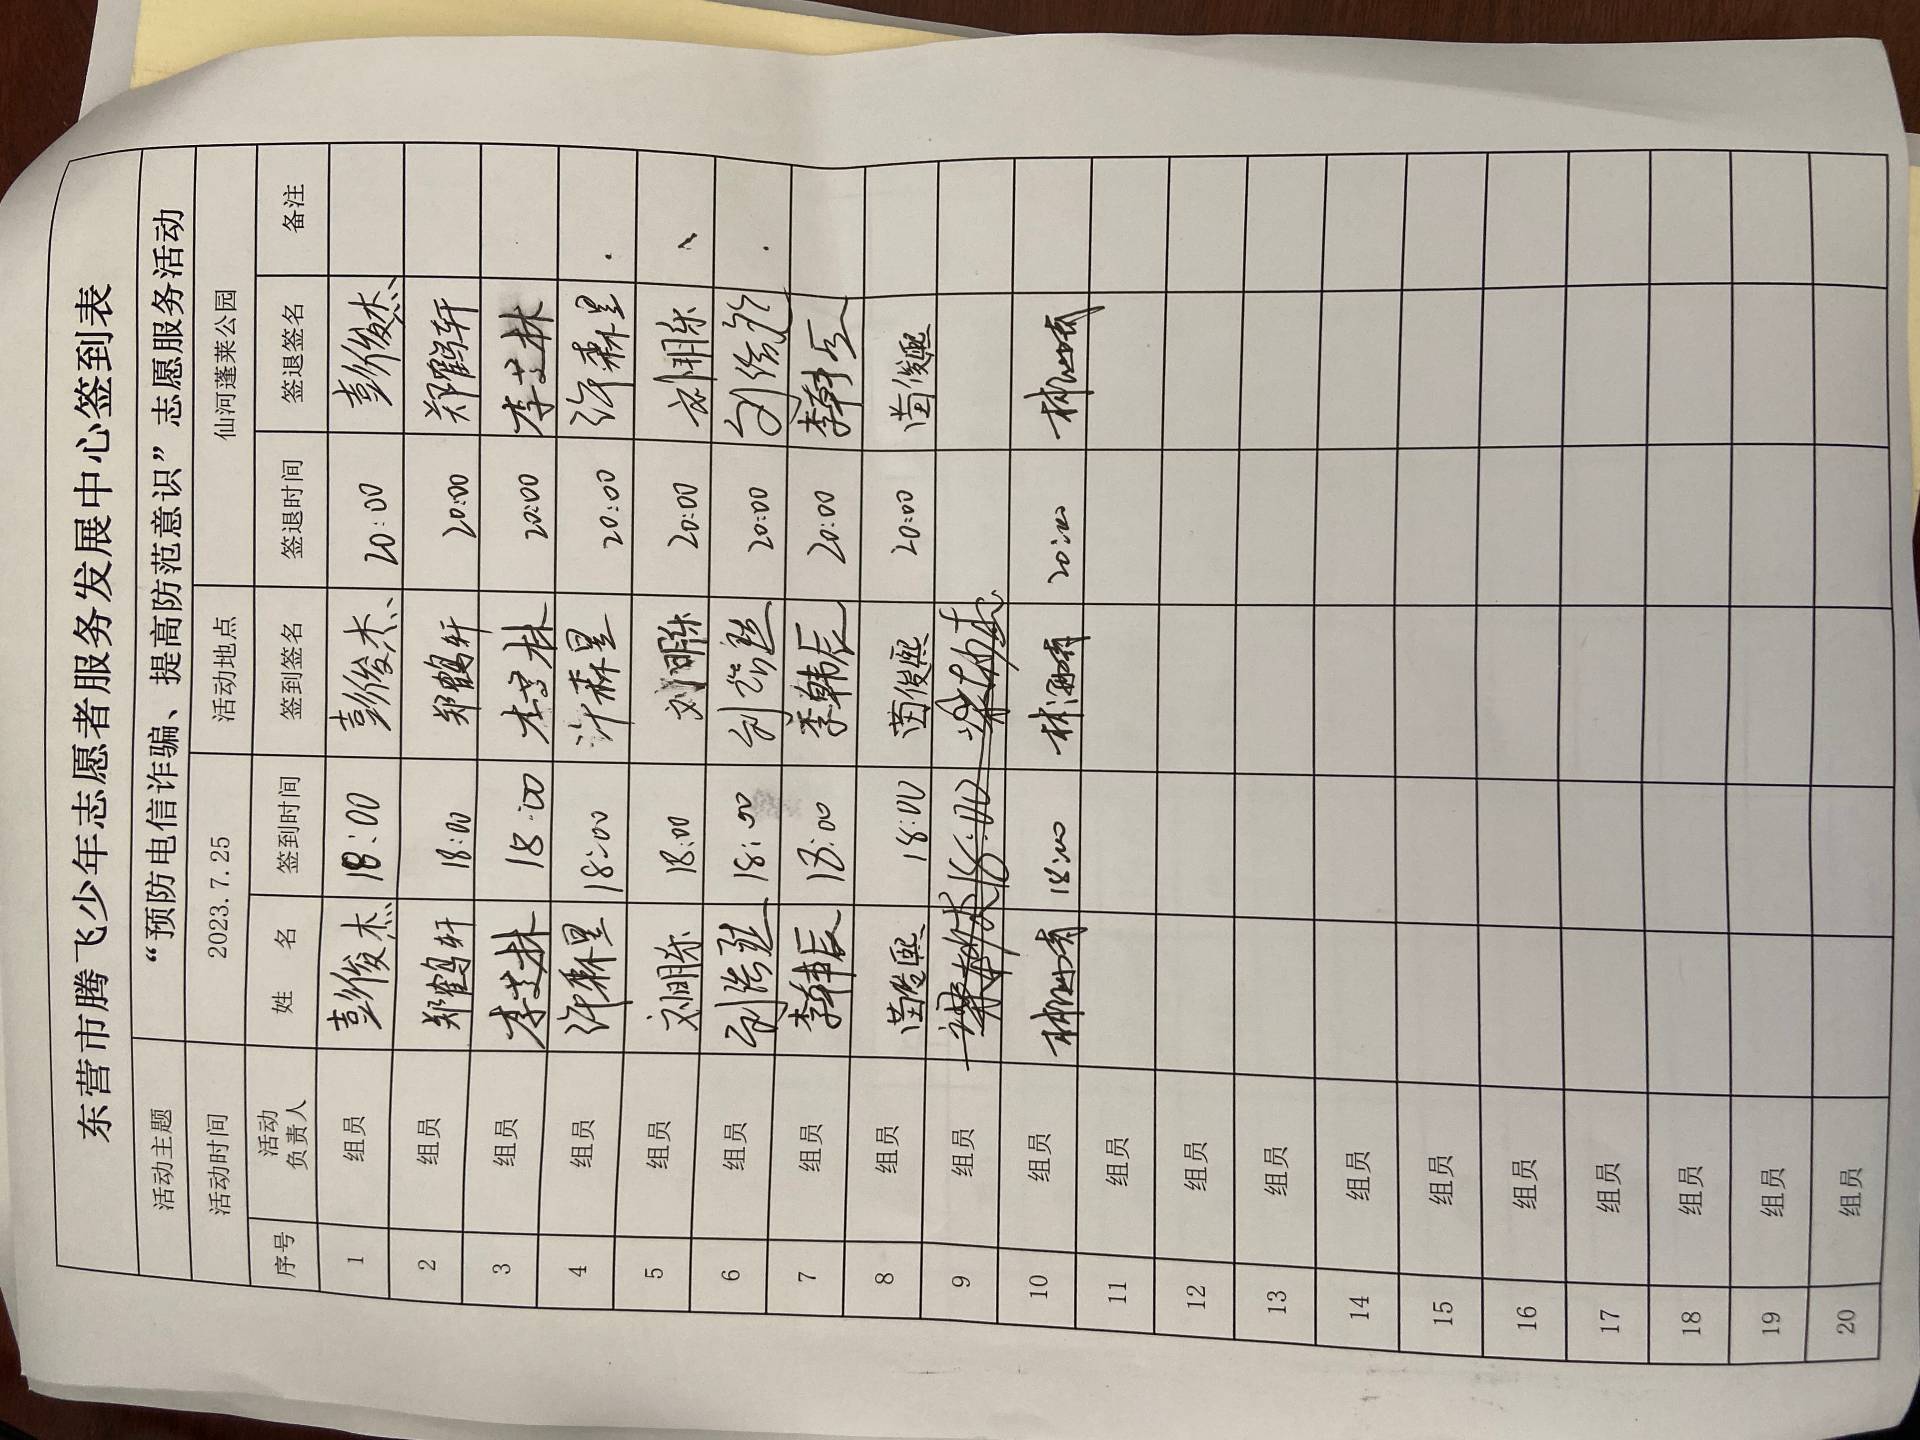 东营市腾飞少年志愿者服务发展中心签到表
活动主题 “预防电信诈骗、提高防范意识”志愿服务活动
活动时间 2023.7.25 活动地点 仙河蓬莱公园
序号 活动负责人 姓 名 签到时间 签到签名 签退时间 签退签名 备注
1 组员 彭俊杰 18:00 彭俊杰 20:00 彭俊杰
2 组员 郑鹤轩 18:00 郑鹤轩 20:00 郑鹤轩
3 组员 李芝林 18:00 李芝林 20:00 李芝林
4 组员 许霖星 18:00 许霖星 20:00 许霖星
5 组员 刘明乐 18:00 刘明乐 20:00 刘明乐
6 组员 18:00 20:00
7 组员 李韩辰 18:00 李韩辰 20:00 李韩辰
8 组员 苗俊熙 18:00 苗俊熙 20:00 苗俊熙
9 组员 18:00
10 组员 18:00 20:00
11 组员
12 组员
13 组员
14 组员
15 组员
16 组员
17 组员
18 组员
19 组员
20 组员